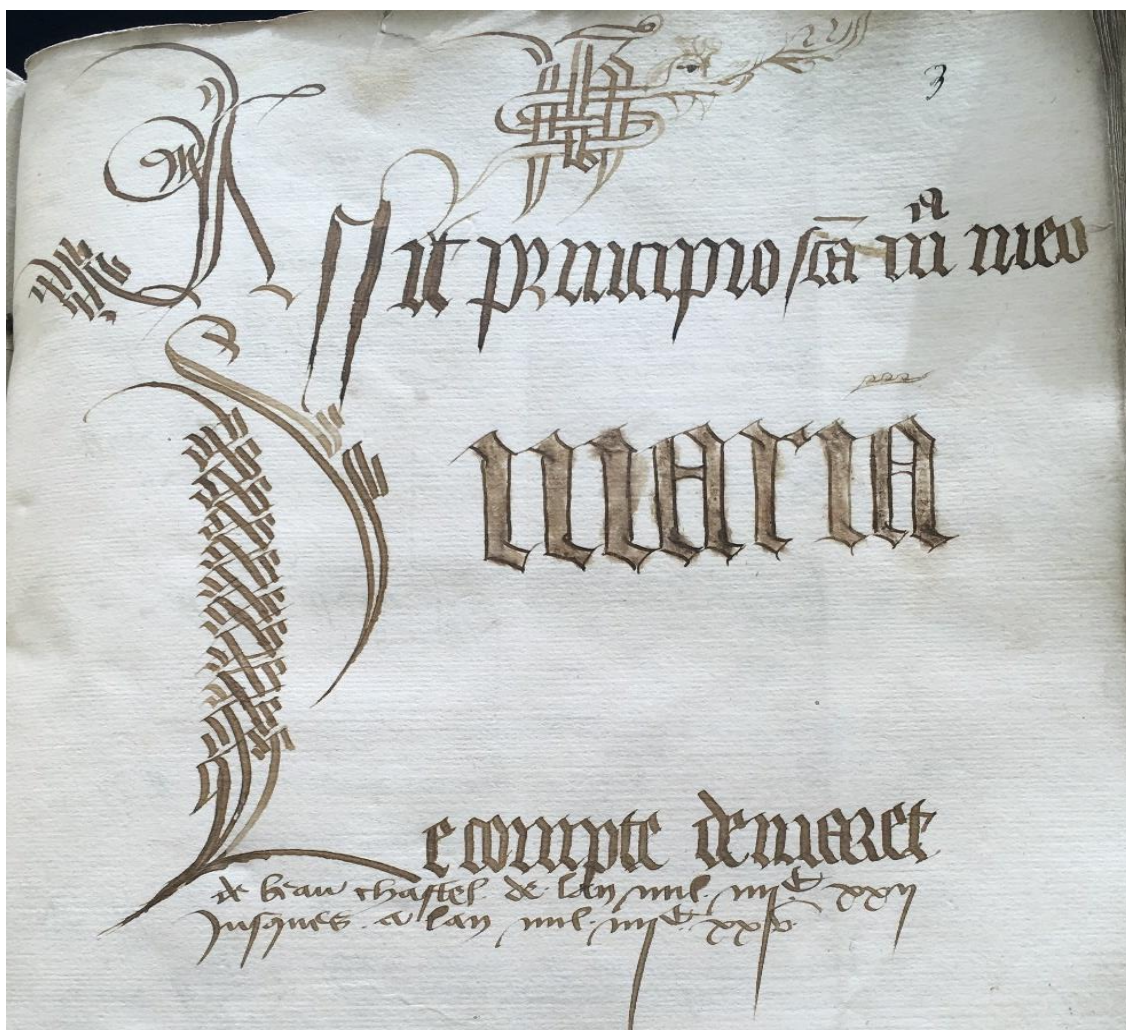 3
Assit principio sca ma meo
maria
Le compte de maret
de beau chastel de lan mil iiiic xxii
Jusques a lan mil iiiic xxv